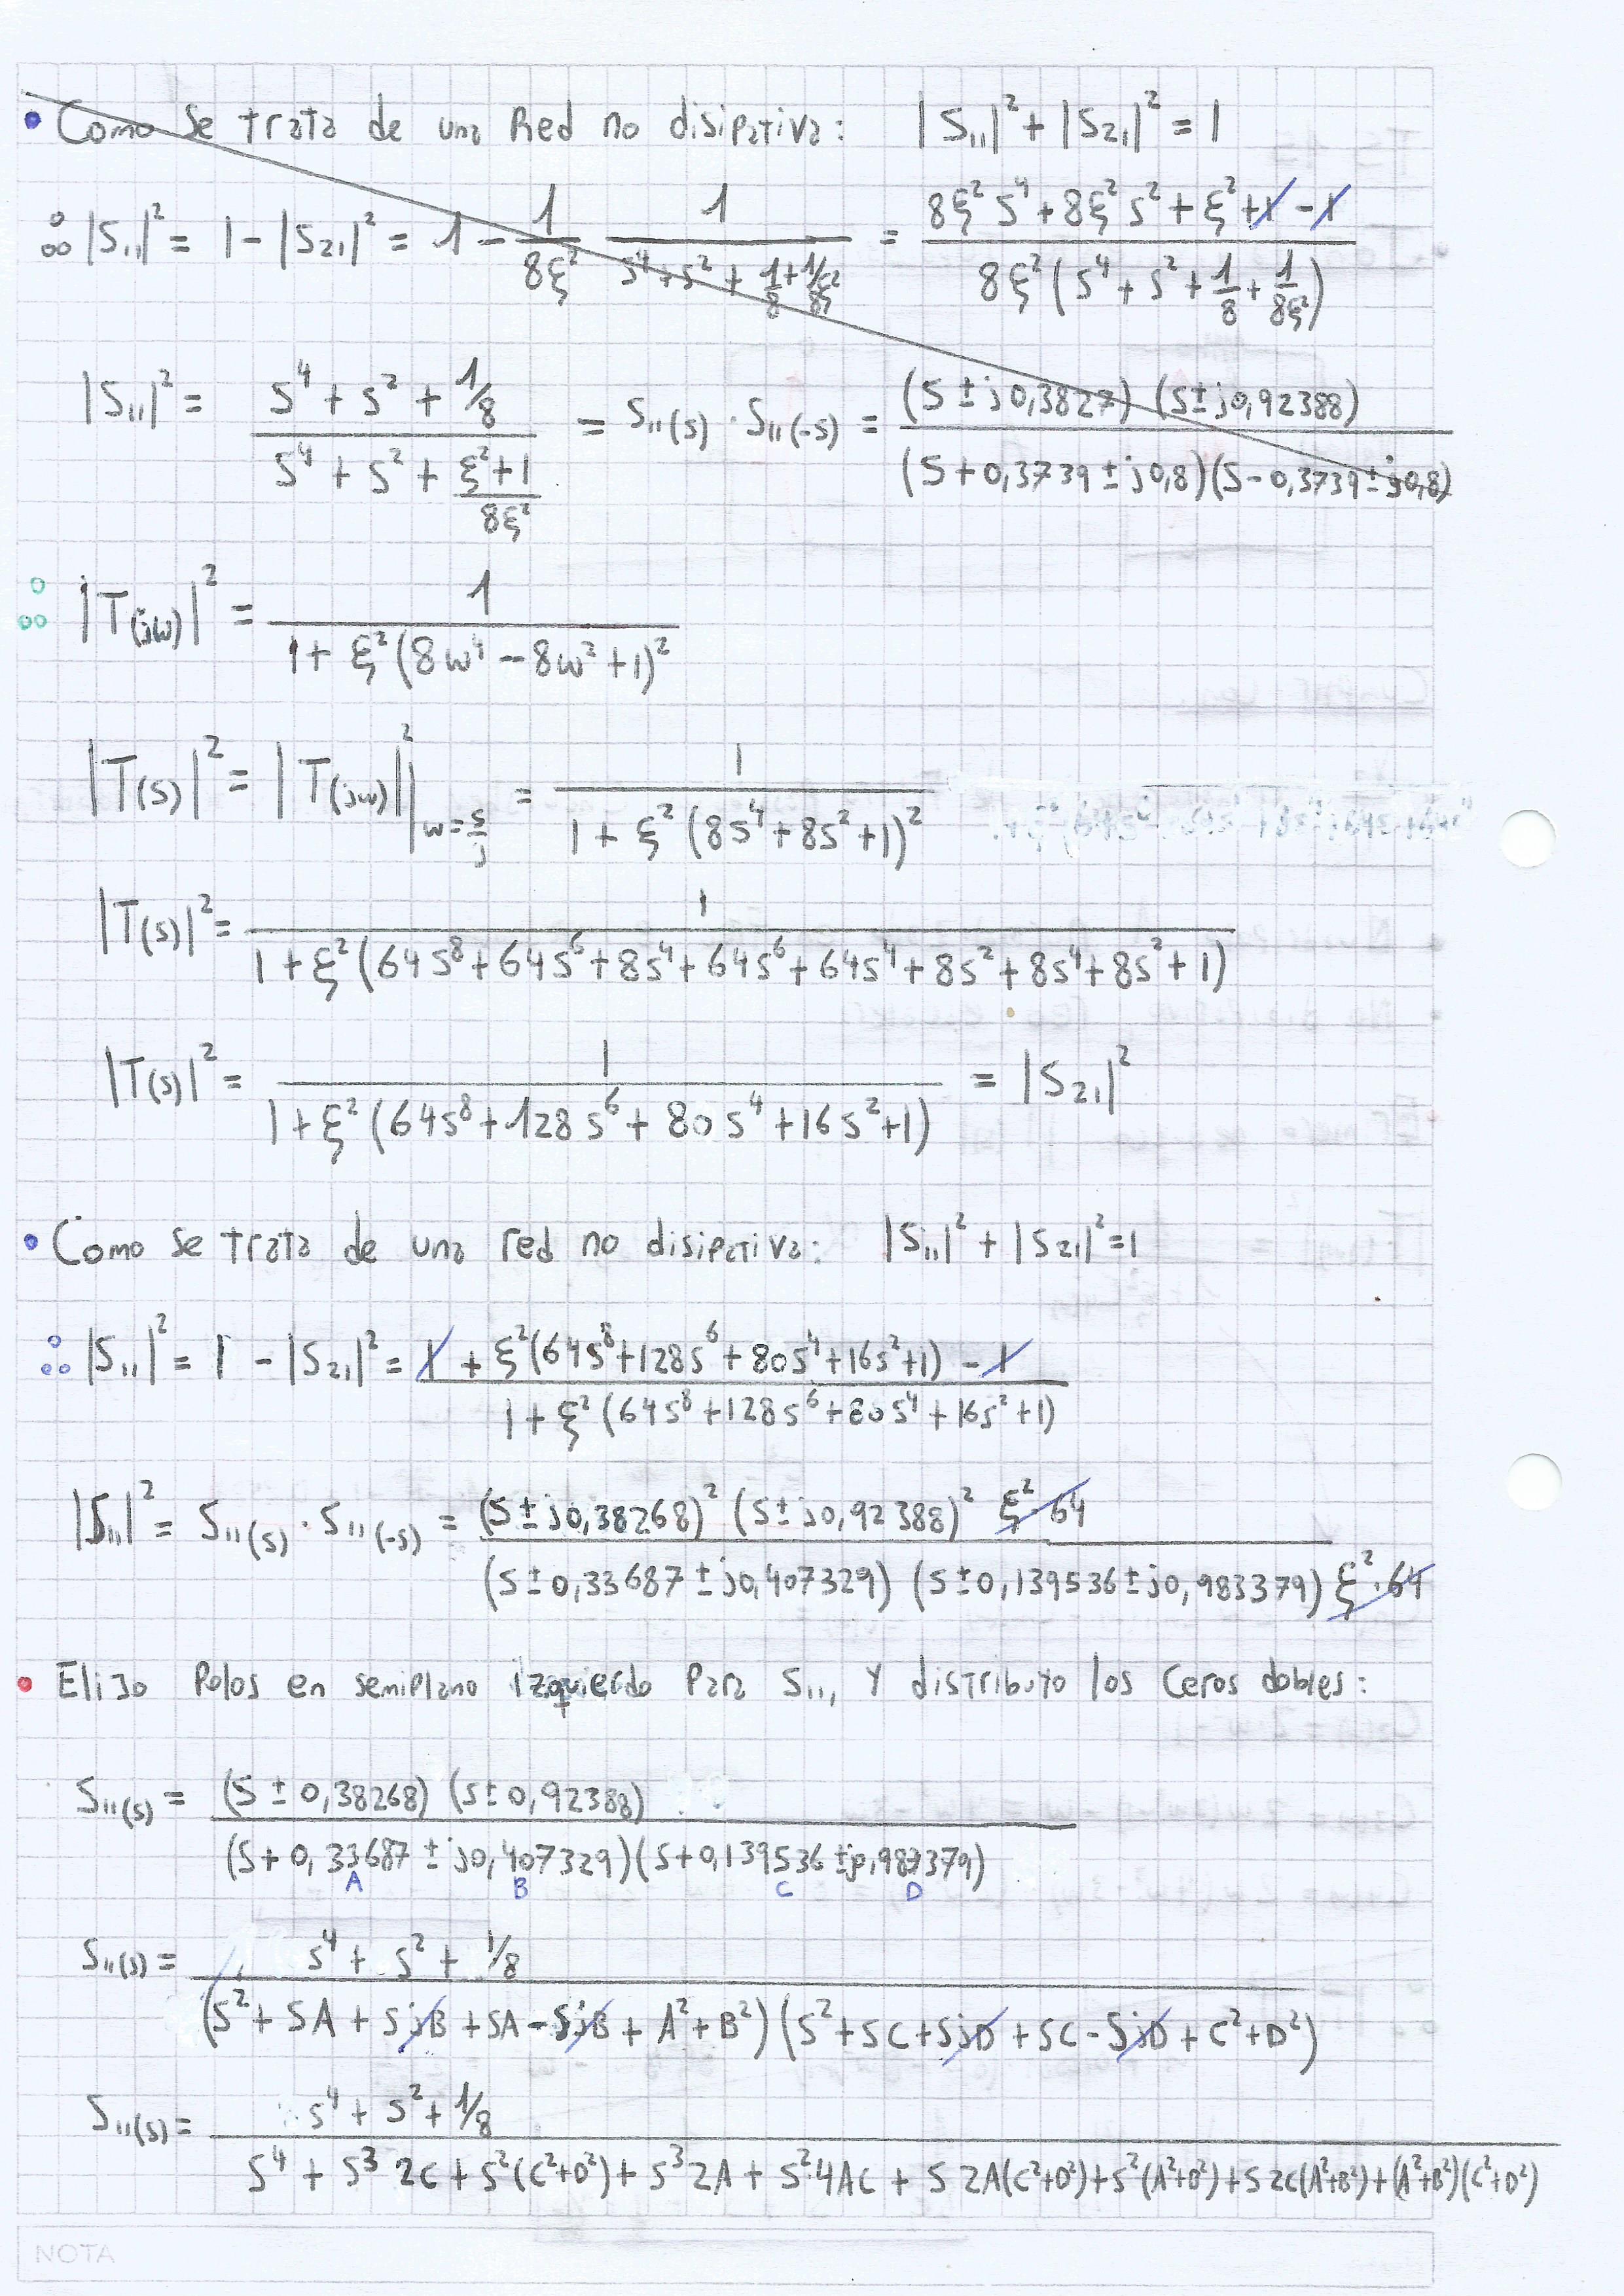 • Como se trata de una Red no disipativa: |S₁₁|² + |S₂₁|² = 1
∴ |S₁₁|² = 1 - |S₂₁|² = 1 - 1/(8ξ²) 1/(s⁴ + s² + 1/8 + 1/8ξ²) = (8ξ² s⁴ + 8ξ² s² + ξ² + 1 - 1)/(8ξ² (s⁴ + s² + 1/8 + 1/8ξ²))
|S₁₁|² = (s⁴ + s² + 1/8)/(s⁴ + s² + (ξ²+1)/8ξ²) = S₁₁(s) · S₁₁(-s) = (s ± j0,3827) (s ± j0,92388)/((s + 0,3739 ± j0,8)(s - 0,3739 ± j0,8))
∴ |T(jw)|² = 1/(1 + ξ² (8w⁴ - 8w² + 1)²)
|T(s)|² = |T(jw)|²|w = s/j = 1/(1 + ξ² (8s⁴ + 8s² + 1)²)
|T(s)|² = 1/(1 + ξ² (64s⁸ + 64s⁶ + 8s⁴ + 64s⁶ + 64s⁴ + 8s² + 8s⁴ + 8s² + 1))
|T(s)|² = 1/(1 + ξ² (64s⁸ + 128s⁶ + 80s⁴ + 16s² + 1)) = |S₂₁|²
• Como se trata de una red no disipativa: |S₁₁|² + |S₂₁|² = 1
∴ |S₁₁|² = 1 - |S₂₁|² = (1 + ξ² (64s⁸ + 128s⁶ + 80s⁴ + 16s² + 1) - 1)/(1 + ξ² (64s⁸ + 128s⁶ + 80s⁴ + 16s² + 1))
|S₁₁|² = S₁₁(s) · S₁₁(-s) = (s ± j0,38268)² (s ± j0,92388)² ξ² 64/((s ± 0,33687 ± j0,407329) (s ± 0,139536 ± j0,983379) ξ² · 64)
• Elijo Polos en semiplano izquierdo Para S₁₁, Y distribuyo los Ceros dobles:
S₁₁(s) = (s ± 0,38268) (s ± 0,92388)/((s + 0,33687 ± j0,407329)(s + 0,139536 ± j0,983379))
A B C D
S₁₁(s) = (s⁴ + s² + 1/8)/((s² + sA + sjB + sA - sjB + A² + B²) (s² + sC + sjD + sC - sjD + C² + D²))
S₁₁(s) = (s⁴ + s² + 1/8)/(s⁴ + s³ 2C + s²(C²+D²) + s³ 2A + s² 4AC + s 2A(C²+D²) + s²(A²+B²) + s 2C(A²+B²) + (A²+B²)(C²+D²))
NOTA